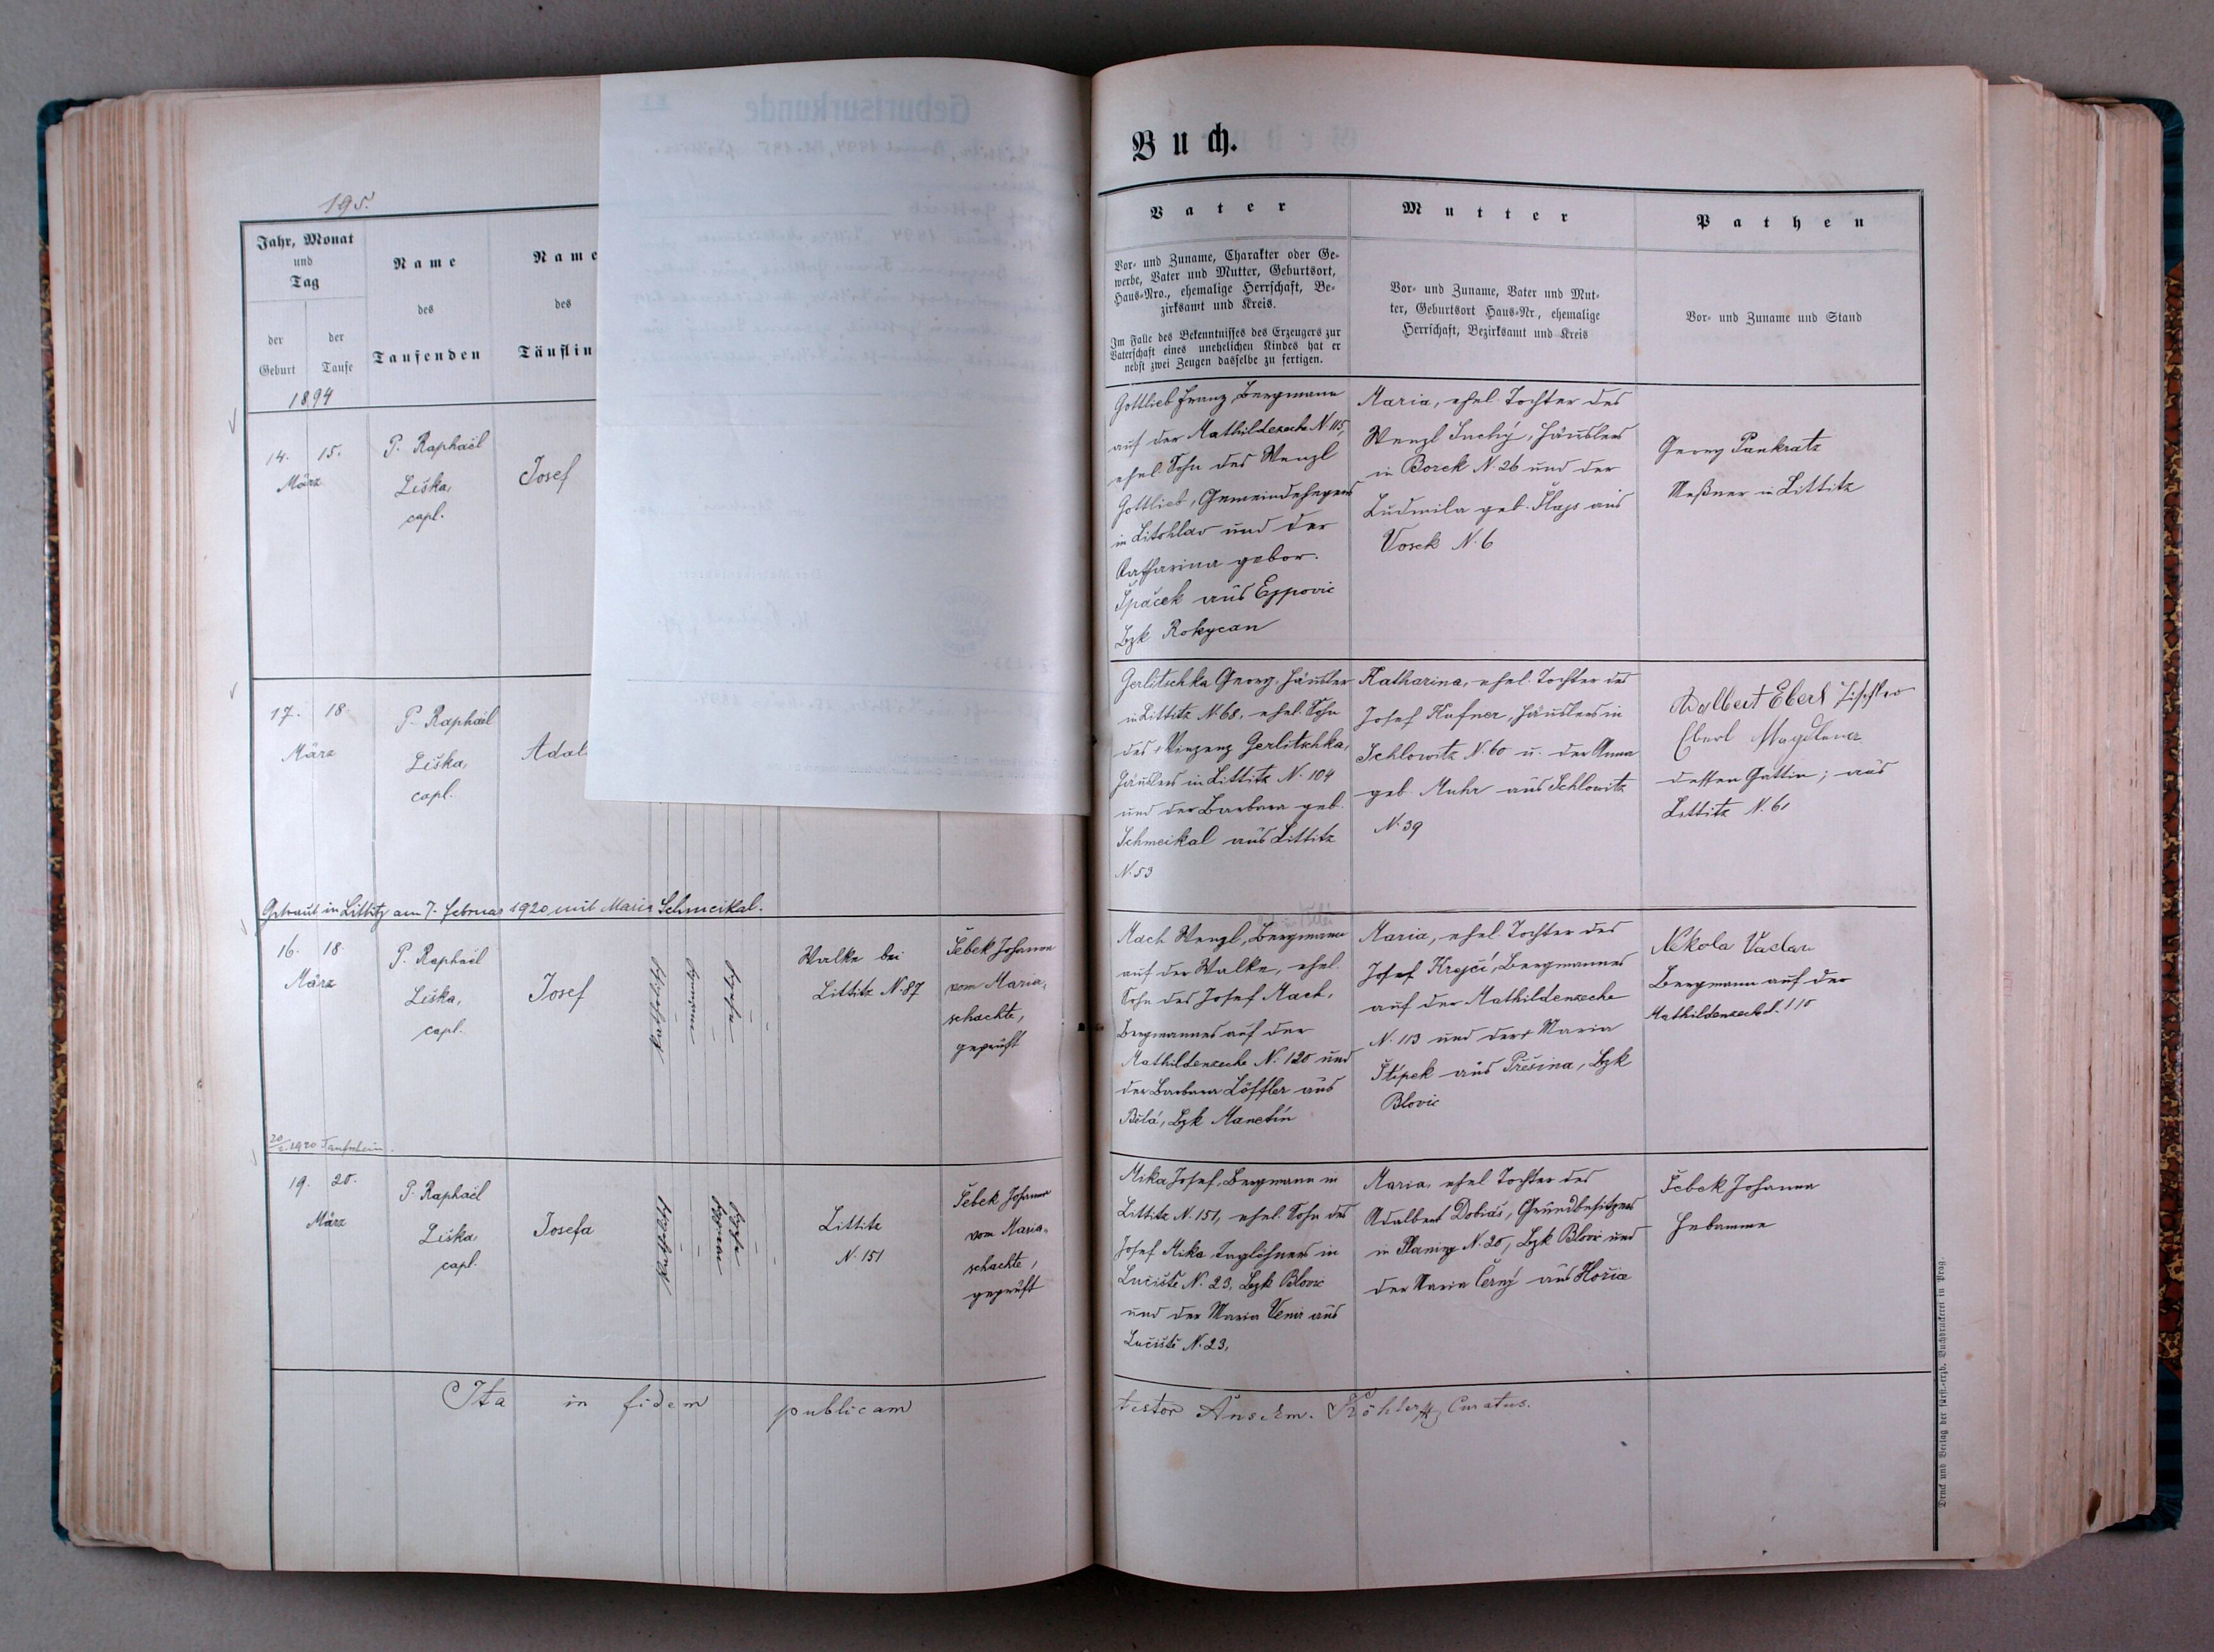 195.
Jahr, Monat
und
Tag
der
Geburt
der
Taufe
Name
des
Taufenden
Name
des
Täuflin
1894
14. 15.
März
P. Raphaël
Liška,
capl.
Josef
17. 18.
März
P. Raphaël
Liška,
capl.
Adal
Getraut in Littitz am 7. Februar 1920 mit Maria Schmeikal.
16. 18.
März
P. Raphaël
Liška,
capl.
Josef
Walke bei
Littitz N. 87
Šebek Johanna
vom Maria-
schachte,
geprüft
1920 Taufschein.
19. 20.
März
P. Raphaël
Liška,
capl.
Josefa
Littitz
N. 151
Šebek Johanna
vom Maria-
schachte,
geprüft
Ita in fidem publicam
Buch.
Vater
Vor- und Zuname, Charakter oder Ge-
werbe, Vater und Mutter, Geburtsort,
Haus-Nro., ehemalige Herrschaft, Be-
zirksamt und Kreis.
Im Falle des Bekenntnisses des Erzeugers zur
Vaterschaft eines unehelichen Kindes hat er
nebst zwei Zeugen dasselbe zu fertigen.
Mutter
Vor- und Zuname, Vater und Mut-
ter, Geburtsort Haus-Nr., ehemalige
Herrschaft, Bezirksamt und Kreis
Pathen
Vor- und Zuname und Stand
Gottlieb Franz, Bergmann
auf der Mathildezeche N. 115,
ehel. Sohn des Wenzl
Gottlieb, Gemeindehegers
in Litohlav und der
Katharina gebor.
Špaček aus Ejpovic
Bzk Rokycan
Maria, ehel. Tochter des
Wenzl Suchý, Häuslers
in Borek N. 26 und der
Ludmila geb. aus
Vosek N. 6
Georg Pankratz
Meßner in Littitz
Gerlitschka Georg, Häusler
in Littitz N. 68, ehel. Sohn
des Vinzenz Gerlitschka,
Häuslers in Littitz N. 104
und der Barbara geb.
Schmeikal aus Littitz
N. 53
Katharina, ehel. Tochter des
Josef Hafner, Häuslers in
Schlowitz N. 60 u. der Anna
geb. Muhr aus Schlowitz
N. 39
Adalbert Eberl Tischler
Eberl Magdlena
dessen Gattin; aus
Littitz N. 61
Mach Wenzl, Bergmann
auf der Walke, ehel.
Sohn des Josef Mach,
Bergmannes auf der
Mathildenzeche N. 120 und
der Barbara Löffler aus
Bělá, Bzk Manetín
Maria, ehel. Tochter des
Josef Krejčí, Bergmannes
auf der Mathildenzeche
N. 113 und der Maria
Štípek aus Přešina, Bzk
Blovic
Nekola Vaclav
Bergmann auf der
Mathildenzeche
Mika Josef, Bergmann in
Littitz N. 151, ehel. Sohn des
Josef Mika Taglöhners in
Lučiště N. 23, Bzk Blovic
und der Maria aus
Lučiště N. 23,
Maria, ehel. Tochter des
Adalbert Dobiáš, Grundbesitzers
in N. 20, Bzk Blovic und
der Maria Černý aus
Šebek Johanna
Hebamme
testor Anselm. Köhler, Curatus.
Druck und Verlag der fürst.-erzb. Buchdruckerei in Prag.